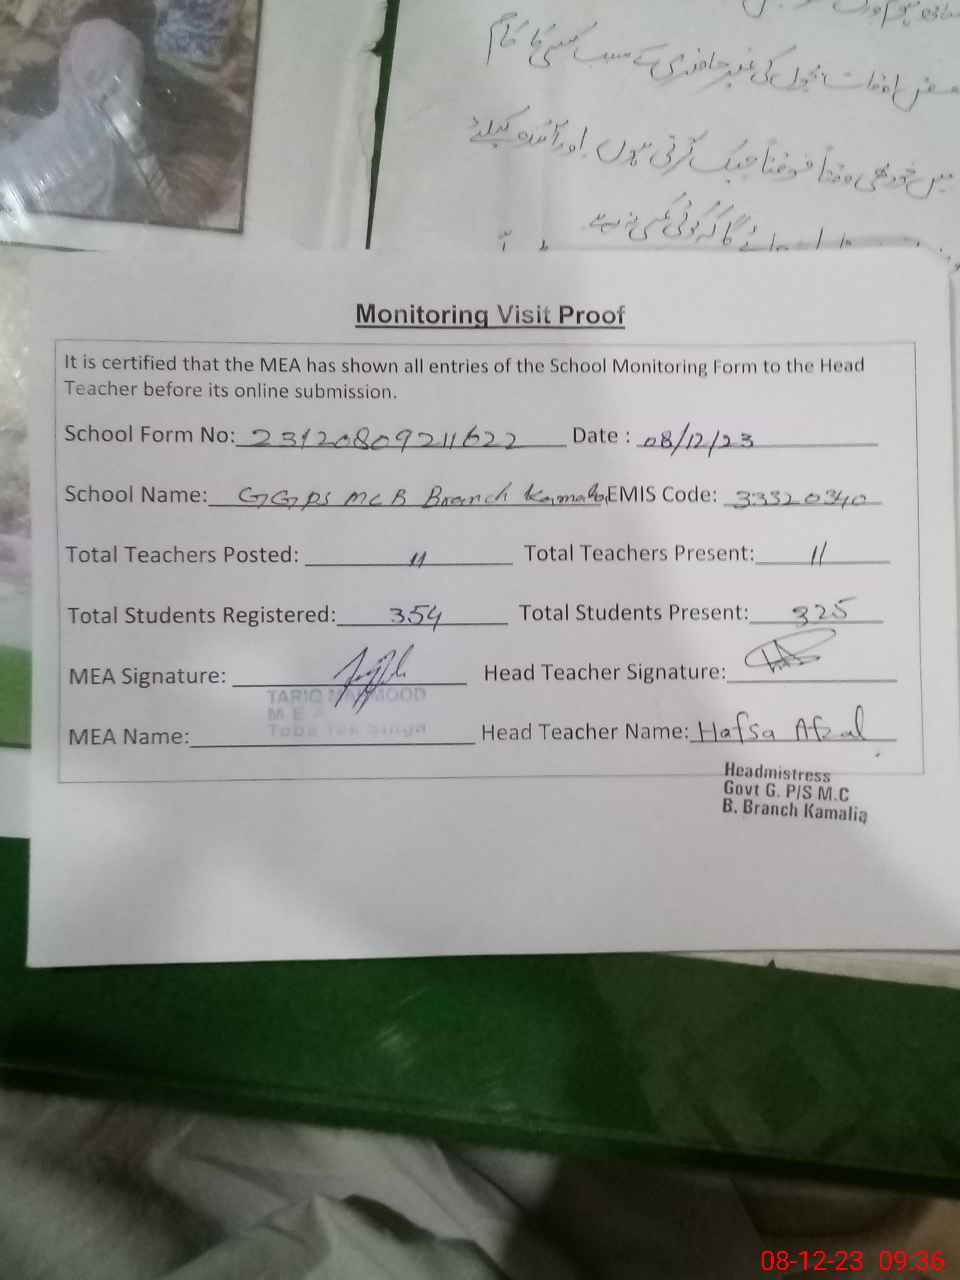 بعض اوقات بچوں کی غیر حاضری کے سبب کمی کا کام
میں خود بھی وقتاً فوقتاً چیک کرتی ہوں اور آئندہ کیلئے
کوئی کمی نہ رہے۔
Monitoring Visit Proof
It is certified that the MEA has shown all entries of the School Monitoring Form to the Head
Teacher before its online submission.
School Form No: 23120809211622 Date : 08/12/23
School Name: GGPS MCB Branch Kamalia EMIS Code: 33320340
Total Teachers Posted: 11 Total Teachers Present: 11
Total Students Registered: 354 Total Students Present: 325
MEA Signature: Head Teacher Signature:
TARIQ MAHMOOD
M E A
Toba Tek Singh
MEA Name: Head Teacher Name: Hafsa Afzal
Headmistress
Govt G. P/S M.C
B. Branch Kamalia
08-12-23 09:36